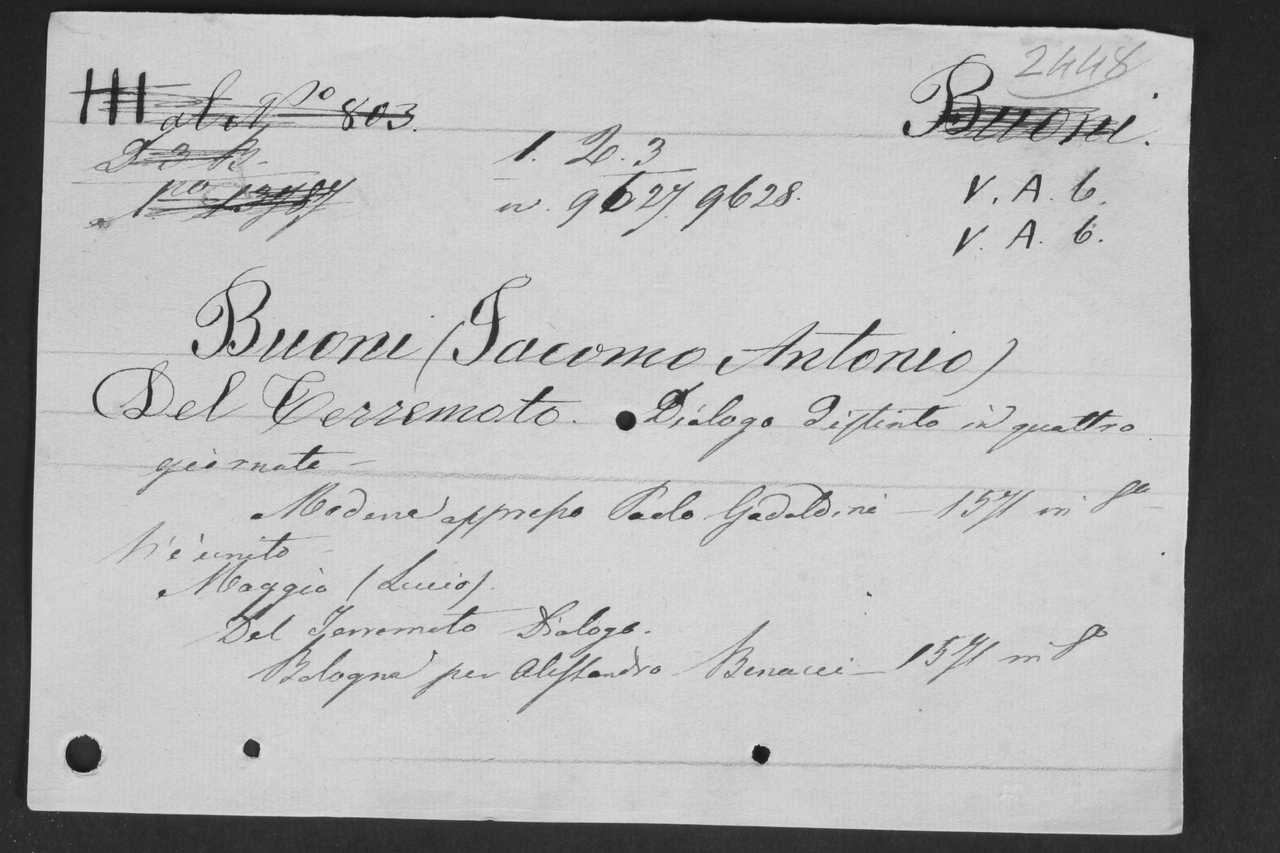 2448
Buoni.
803.
D 3 B.
1. 2. 3
V. A. 6.
n. 9627. 9628.
V. A. 6.
Buoni (Jacomo Antonio)
Del Terremoto. Dialogo distinto in quattro
giornate -
Modena appresso Paolo Gadaldini - 1571 in 8º -
V'è unito -
Maggio (Lucio).
Del Terremoto Dialogo.
Bologna per Alessandro Benacci - 1571 in 8º